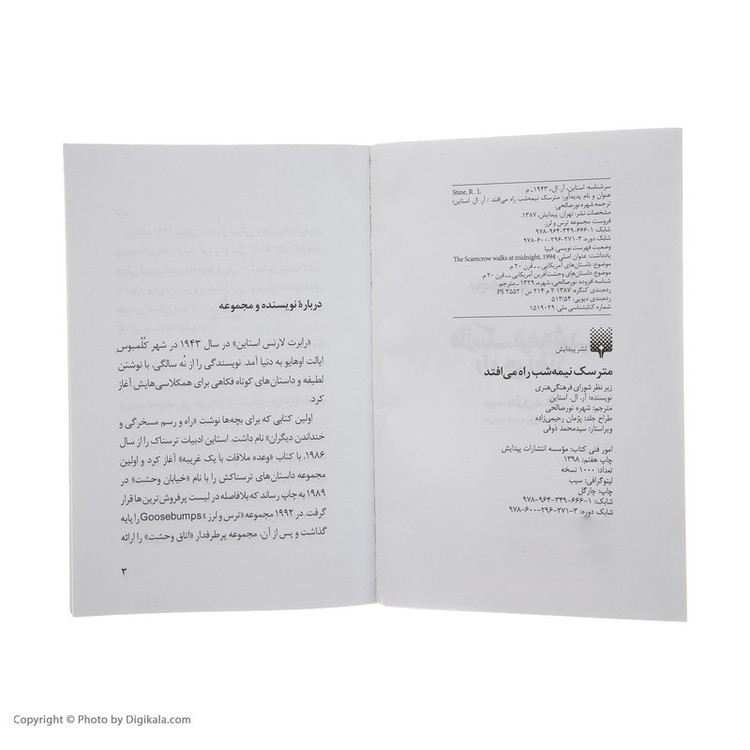 سرشناسه: استاین، آر. ال، ۱۹۴۳- م. Stine, R. L
عنوان و نام پدیدآور: مترسک نیمه‌شب راه می‌افتد / آر. ال. استاین؛
ترجمه شهره نورصالحی.
مشخصات نشر: تهران: پیدایش، ۱۳۸۷.
فروست: مجموعه ترس و لرز؛
شابک: ۱-۶۶۶-۳۴۹-۹۶۴-۹۷۸
شابک دوره: ۳-۲۷۱-۲۹۶-۶۰۰-۹۷۸
وضعیت فهرست نویسی: فیپا
یادداشت: عنوان اصلی: The Scarecrow walks at midnight, 1994
موضوع: داستان‌های آمریکایی -- قرن ۲۰ م
موضوع: داستان‌های وحشت‌آفرین آمریکایی -- قرن ۲۰ م
شناسه افزوده: نورصالحی، شهره، ۱۳۲۹، -مترجم.
رده‌بندی کنگره: ۱۳۸۷ ۲ م ۲۱۴ س / PS ۳۵۵۲
رده‌بندی دیویی: ۵۱۳/۵۴
شماره کتابشناسی ملی: ۱۵۱۹۰۲۹
نشر پیدایش
مترسک نیمه‌شب راه می‌افتد
زیر نظر شورای فرهنگی‌هنری
نویسنده: آر. ال. استاین
مترجم: شهره نورصالحی
طراح جلد: پژمان رحیمی‌زاده
ویراستار: سیدمحمد ذوقی
امور فنی کتاب: مؤسسه انتشارات پیدایش
چاپ هفتم: ۱۳۹۸
تعداد: ۱۰۰۰ نسخه
لیتوگرافی: سیب
چاپ: چارگل
شابک: ۱-۶۶۶-۳۴۹-۹۶۴-۹۷۸
شابک دوره: ۳-۲۷۱-۲۹۶-۶۰۰-۹۷۸
دربارهٔ نویسنده و مجموعه
«رابرت لارنس استاین» در سال ۱۹۴۳ در شهر کُلُمبوس
ایالت اوهایو به دنیا آمد. نویسندگی را از نُه سالگی، با نوشتن
لطیفه و داستان‌های کوتاه فکاهی برای همکلاسی‌هایش آغاز
کرد.
اولین کتابی که برای بچه‌ها نوشت «راه و رسم مسخرگی و
خنداندن دیگران» نام داشت. استاین ادبیات ترسناک را از سال
۱۹۸۶، با کتاب «وعده ملاقات با یک غریبه» آغاز کرد و اولین
مجموعه داستان‌های ترسناکش را با نام «خیابان وحشت» در
۱۹۸۹ به چاپ رساند که بلافاصله در لیست پرفروش‌ترین‌ها قرار
گرفت. در ۱۹۹۲ مجموعه «ترس و لرز» Goosebumps را پایه
گذاشت و پس از آن، مجموعه پرطرفدار «اتاق وحشت» را ارائه
۳
Copyright © Photo by Digikala.com